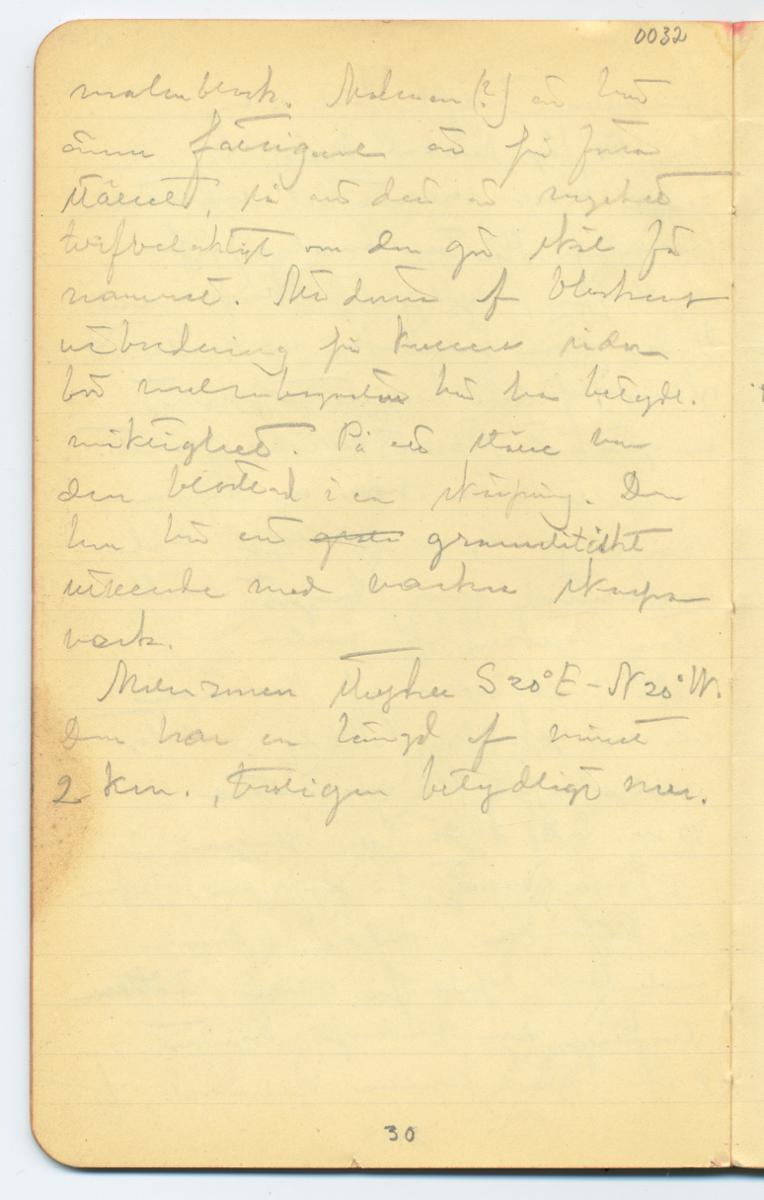 0032
malmblock. Malmen (?) är här
ännu fattigare än på förra
stället, så att det är mycket
tvifvelaktigt om den gör skäl för
namnet. Att döma af blockens
utbredning på kullens sidor
bör
här ha betydl.
mäktighet. På ett ställe har
den blottad i en skärpning. Den
har här ett granulitiskt
utseende med vackra
Malmzonen stryker S20°E-N20°W.
Den har en längd af minst
2 km., troligen betydligt mer.
30